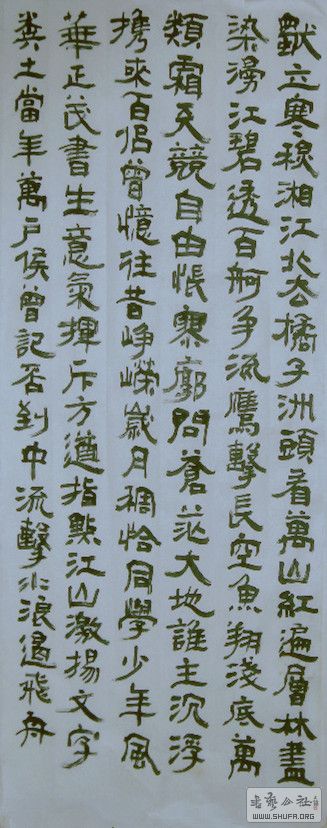 獨立寒秋湘江北去橘子洲頭看萬山紅遍層林盡
染漫江碧透百舸争流鷹擊長空魚翔淺底萬
類霜天競自由悵寥廓問蒼茫大地誰主沉浮
攜來百侣曾憶往昔崢嶸歲月稠恰同學少年風
華正茂書生意氣揮斥方遒指點江山激揚文字
糞土當年萬户侯曾記否到中流擊水浪遏飛舟
书艺公社
WWW.SHUFA.ORG